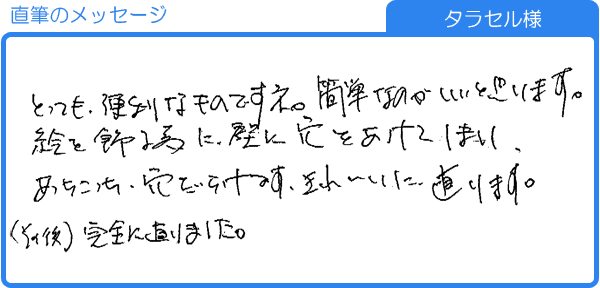 直筆のメッセージ
タラセル様
とっても、便利なものですネ。簡単なのがいいと思います。
絵を飾る為に、壁に穴をあけてしまい、
あっちこっち、穴だらけです、きれいに直ります。
(その後)完全に直りました。